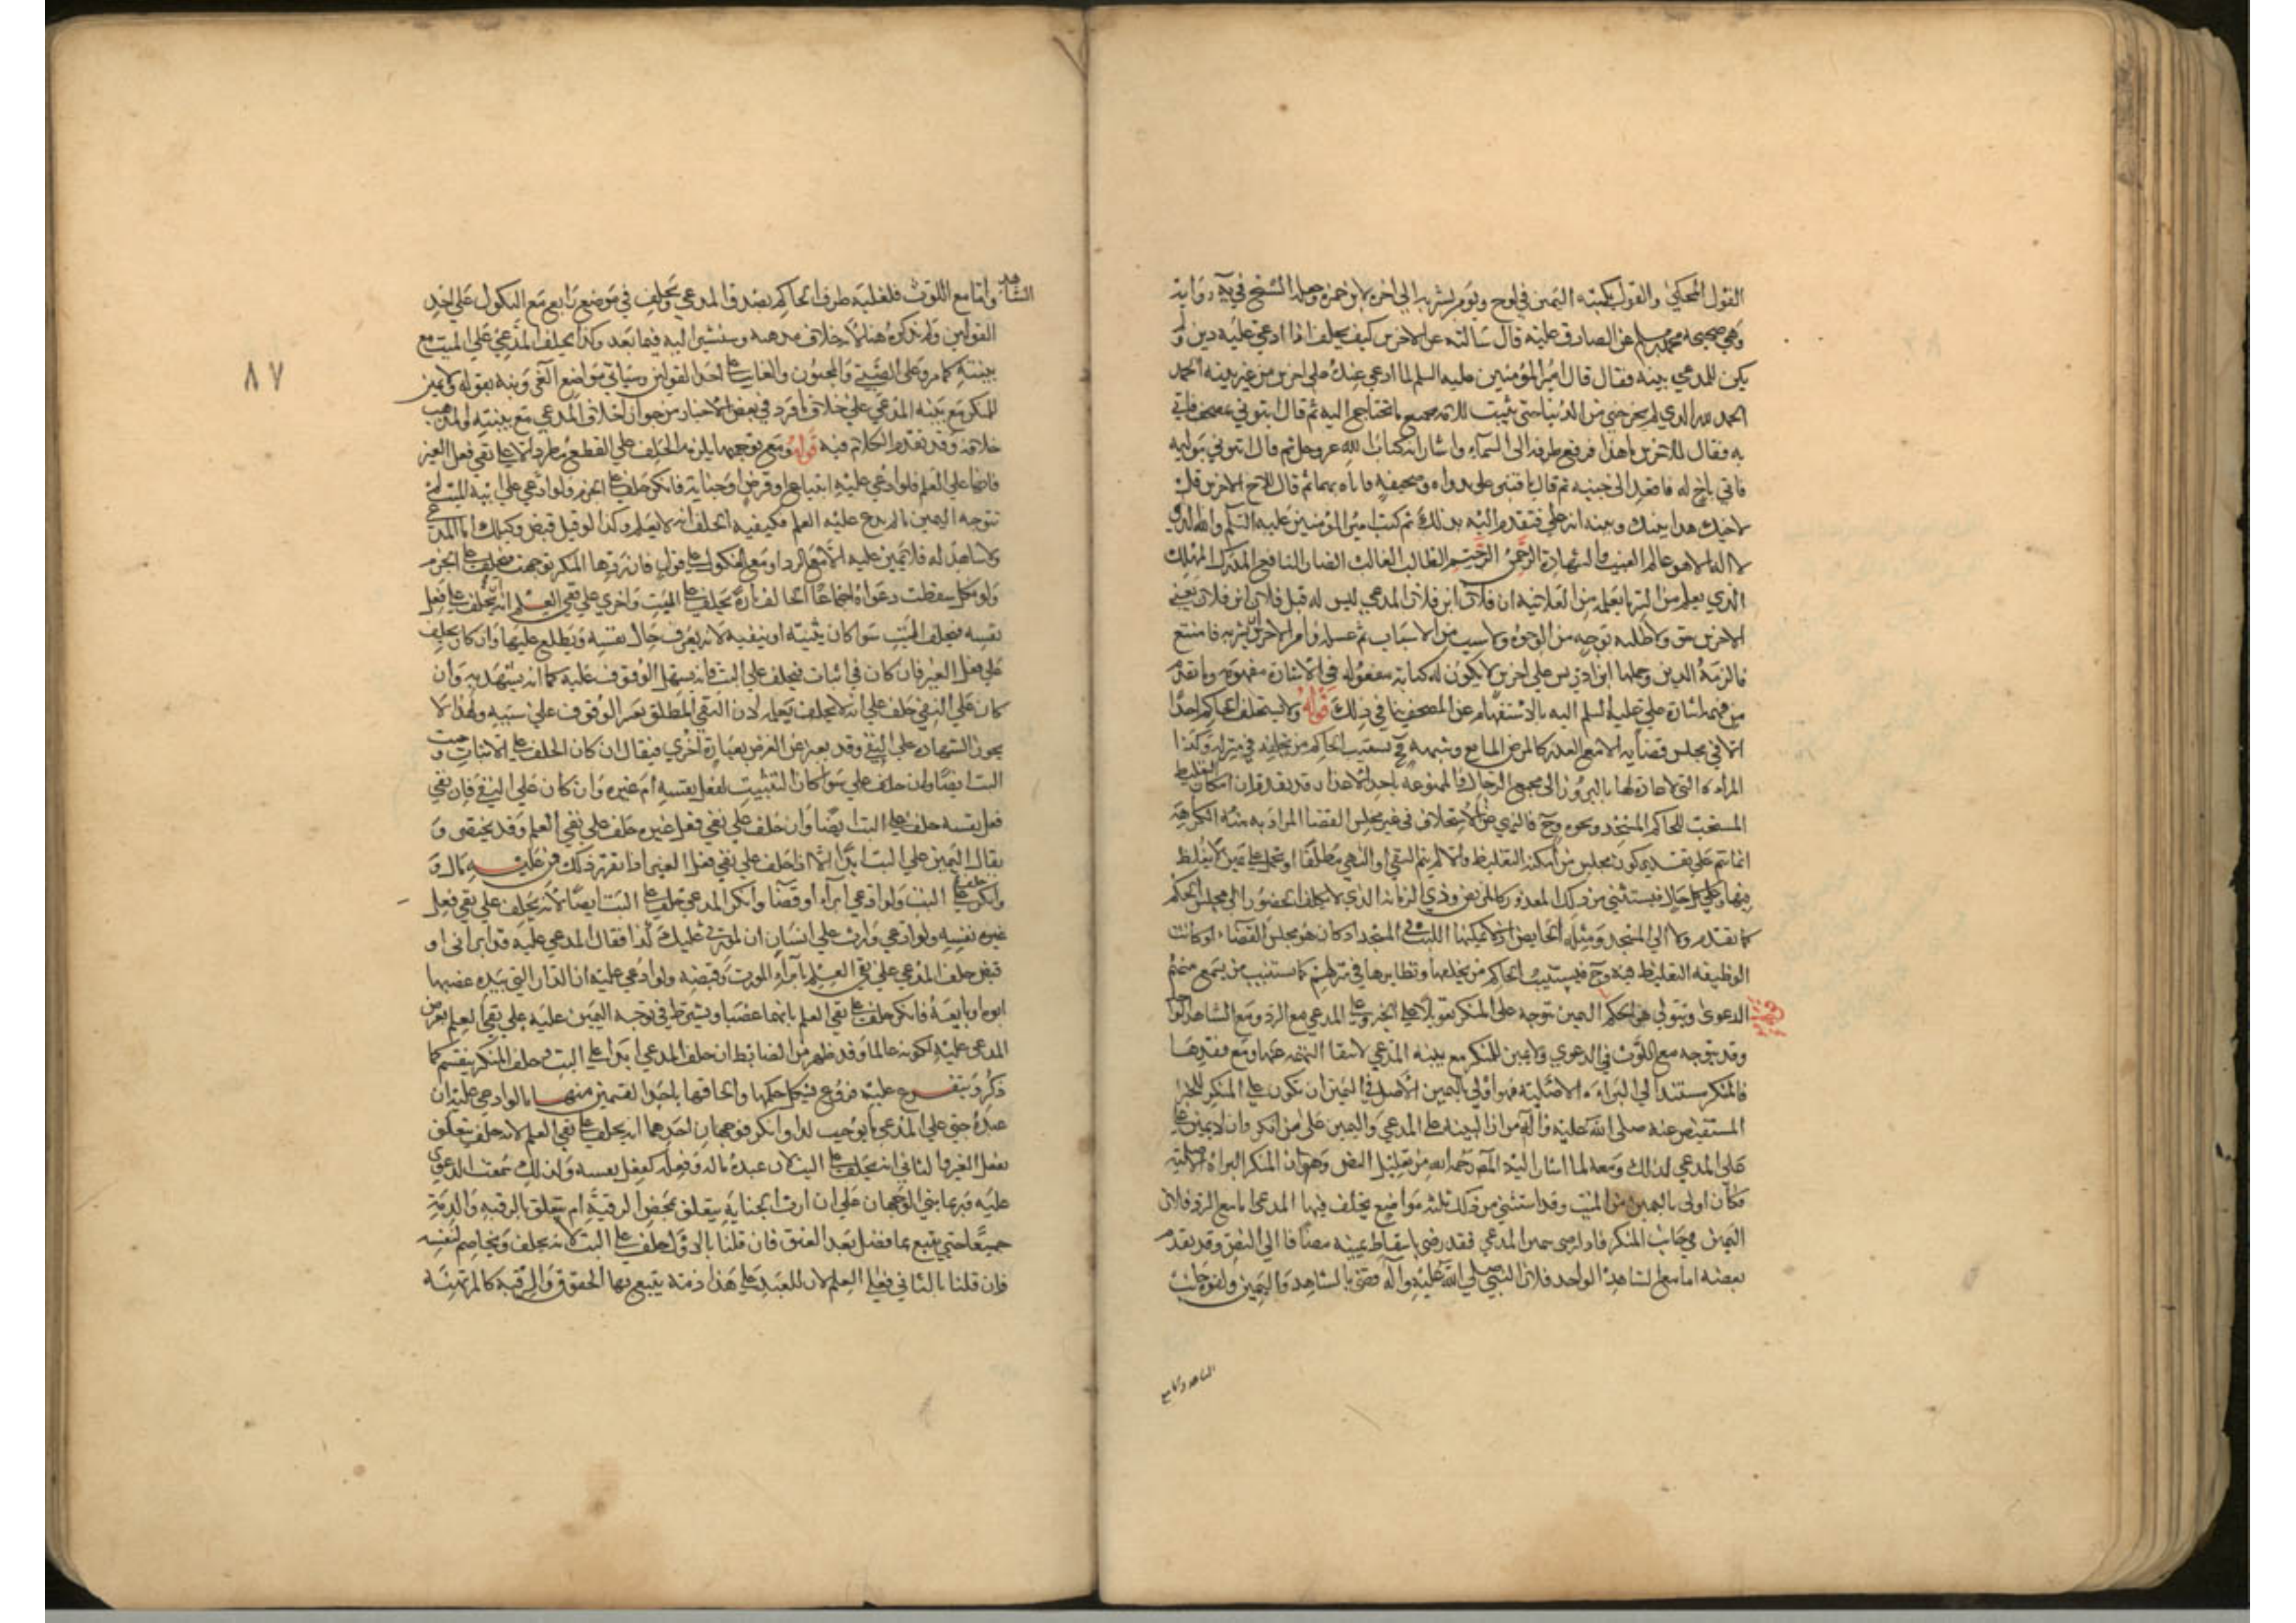 القول المحكي والقول بكتبه اليمين في لوح ويؤمر بشربه الى اخره لابن حمزة وجعله الشيخ في يه رواية
وهي صحيحة محمد بن مسلم عن الصادق عليه قال سالته عن الاخرس كيف يحلف اذا ادعي عليه دين و لم
يكن للمدعي بينه فقال قال امير المؤمنين عليه السلم لما ادعي عنده على اخرس من غير بينه الحمد
الحمد لله الذي لم يخرجني من الدنيا حتى يثبت للامة جميع ما تحتاج اليه ثم قال ايتوني بمصحف فاتي
به فقال للاخرس ما هذا فرفع طرفه الى السماء واشار انه كتاب الله عز وجل ثم قال ايتوني بوليه
فاتي باخ له فاقعده الى جنبه ثم قال يا قنبر علي بدواه وصحيفه فاتاه بهما ثم قال لاخ الاخرس قل
لاخيك هذا بينك وبينه انه علي فتقدم اليه بذلك ثم كتب امير المؤمنين عليه السلم والله الذي
لا اله الا هو عالم الغيب والشهادة الرحمن الرحيم الطالب الغالب الضار النافع المدرك المهلك
الذي يعلم من السر ما يعلمه من العلانيه ان فلان ابن فلان المدعي ليس له قبل فلان ابن فلان يعني
الاخرس حق ولا طلبه بوجه من الوجوه ولا سبب من الاسباب ثم غسله وامر الاخرس ان يشربه فامتنع
فالزمه الدين وحملها ابن ادريس على اخرس لا يكون له كتابة معقوله في الاشارة مفهومه وما تقدم
من فهم اشارة علي عليه السلم اليه بالاستفهام عن المصحف ينافي ذلك قوله ولا يستحلف الحاكم احدا
الا في مجلس قضايه الا مع العذر كالمرض المانع وشبهه فح يستنيب الحاكم من يحلفه في منزله وكذا
المراه التي لا عادة لها بالبروز الى مجمع الرجال او الممنوعه باحد الاعذار قد تقدم ان امكان التغليظ
المستحب للحاكم المسجد ونحوه وح فالنهي عن الاستحلاف في غير مجلس القضا المراد به منه الكراهة
انما يتم على تقدير كون مجلس من امكنه التغليظ والا لم يتم النفي او النهي مطلقا او يحمل على يمين لا تغليظ
فيها وعلى كل حال فيستثنى من ذلك المعذور كالمريض وذي الزمانة الذي لا يكلف الحضور الى مجلس الحكم
كما تقدم ولا الى المسجد ومثله الحايض اذ لا يمكنها اللبث في المسجد اذ كان هو مجلس القضاء او كانت
الوظيفه التغليظ فيه وح فيستنيب الحاكم من يحلفها ونظايرها في منزلهم كما يستنيب من يسمع منهم
الدعوى ويتولى هو الحكم اليمين تتوجه على المنكر تعويلا على الخبر وعلى المدعي مع الرد ومع الشاهد الواحد
وقد تتوجه مع اللوث في الدعوي ولا يمين للمنكر مع بينه المدعي لانتفا التهمه عنها ومع فقدها
فالمنكر مستند الى البراءه الاصليه فهو اولي باليمين الاصل في اليمين ان تكون على المنكر للخبر
المستفيض عنه صلى الله عليه وآله من ان البينه على المدعي واليمين على من انكر وان لا يمين
على المدعي لذلك ومعه لما اشار اليه المص رحمه الله من تعليل النص وهو ان المنكر البراه الاصليه
فكان اولى باليمين من المثبت وقد استثني من ذلك ثلثه مواضع يحلف فيها المدعي اما مع الرد فلان
اليمين في جانب المنكر فاذا رضي بيمين المدعي فقد رضي باسقاط يمينه مضافا الى النص وقد تقدم
بعضه اما مع الشاهد الواحد فلان النبي صلى الله عليه وآله قضى بالشاهد واليمين ولقوه جانب
الشاهد واما مع
٨٧
الشاهد واما مع اللوث فلغلبه ظرف الحاكم بصدق المدعي ويحلف في موضع رابع مع النكول على احد
القولين ولم يذكره هنا لانه خلاف مذهبه وسنشير اليه فيما بعد وكذا يحلف المدعي على الميت مع
بينته كما مر وعلى الصبي والمجنون والغايب على احد القولين وسياتي مواضع اخر وبنه بقوله ولا يمين
للمنكر مع بينه المدعي على خلاف ما ورد في بعض الاخبار من جواز احلاف المدعي مع بينته والمذهب
خلافه وقد تقدم الكلام فيه قوله ومع توجهها يلزمه الحلف على القطع مطردا الا على نفي فعل الغير
فانها على العلم فلو ادعي عليه ابتياع او قرض او جناية فانكر حلف على الجزم ولو ادعي على ابيه الميت لم
تتوجه اليمين ما لم يدع عليه العلم فيكفيه الحلف انه لا يعلم وكذا لو قيل قبض وكيلك اما المدعي
ولا شاهد له فلا يمين عليه الا مع الرد او مع نكول على قول فان ردها المنكر توجهت فيحلف على الجزم
ولو نكل سقطت دعواه اجماعا الحالف تارة يحلف على البت واخري على نفي العلم انه يحلف على فعل
نفسه فيحلف البت سوا كان يثبته او ينفيه لانه يعرف حال نفسه ويطلع عليها وان كان يحلف
على فعل الغير فان كان في اثبات فيحلف على البت فانه يسهل الوقوف عليه كما انه يشهد به وان
كان على النفي حلف على انه لا يحلف يعلم لان النفي المطلق يعسر الوقوف على سببه ولهذا لا
يجوز الشهادة على النفي وقد يعبر عن الغرض بعبارة اخري فيقال ان كان الحلف على الاثبات وجب
البت ايضا وان حلف على سوا كان التثبيت لفعل نفسه ام غيره وان كان على النفي فان نفي
فعل نفسه حلف على البت ايضا وان حلف على نفي فعل غيره حلف على نفي العلم وقد يختصر و
يقال اليمين على البت ابدا الا اذا حلف على نفي فعل الغير اذا تقرر ذلك فمن عليه مال و
وانكر حلف على البت ولو ادعي ابراء او قضا وانكر المدعي حلف على البت ايضا لانه يحلف على نفي فعل
غيره نفسه ولو ادعي وارث على انسان ان لمورثي عليك كذا فقال المدعي عليه قد ابراني او
قبض حلف المدعي على نفي العلم بابراء المورث وقبضه ولو ادعي عليه ان الدار التي بيده غصبها
ابوه او بايعه فانكر حلف على نفي العلم بانهما غصبا ويشترط في توجه اليمين عليه على نفي العلم تعرض
المدعي عليه لكونه عالما وقد ظهر من الضابط ان حلف المدعي ابدا على البت وحلف المنكر ينقسم كما
ذكر ويتفرع عليه فروع فيكل حكمها والحاقها باحد القسمين منهما ما لو ادعي عليه ان
عبده جنى على المدعي ما يوجب كذا وانكر فوجهان احدهما انه يحلف على نفي العلم لانه حلف يتعلق
بفعل الغير والثاني انه يحلف على البت لان عبده ماله وفعله كفعل نفسه ولذلك سمعت الدعوي
عليه وربما بني الوجهان على ان ارش الجناية يتعلق بمحض الرقبة ام يتعلق بالرقبه والذمة
جميعا حتى يتبع بما فضل بعد العتق فان قلنا بالاول حلف على البت لانه يحلف ويخاصم لنفسه
وان قلنا بالثاني فعلى العلم لان للعبد على هذا ذمة يتبع بها الحقوق والرقبه كالمرتهنه